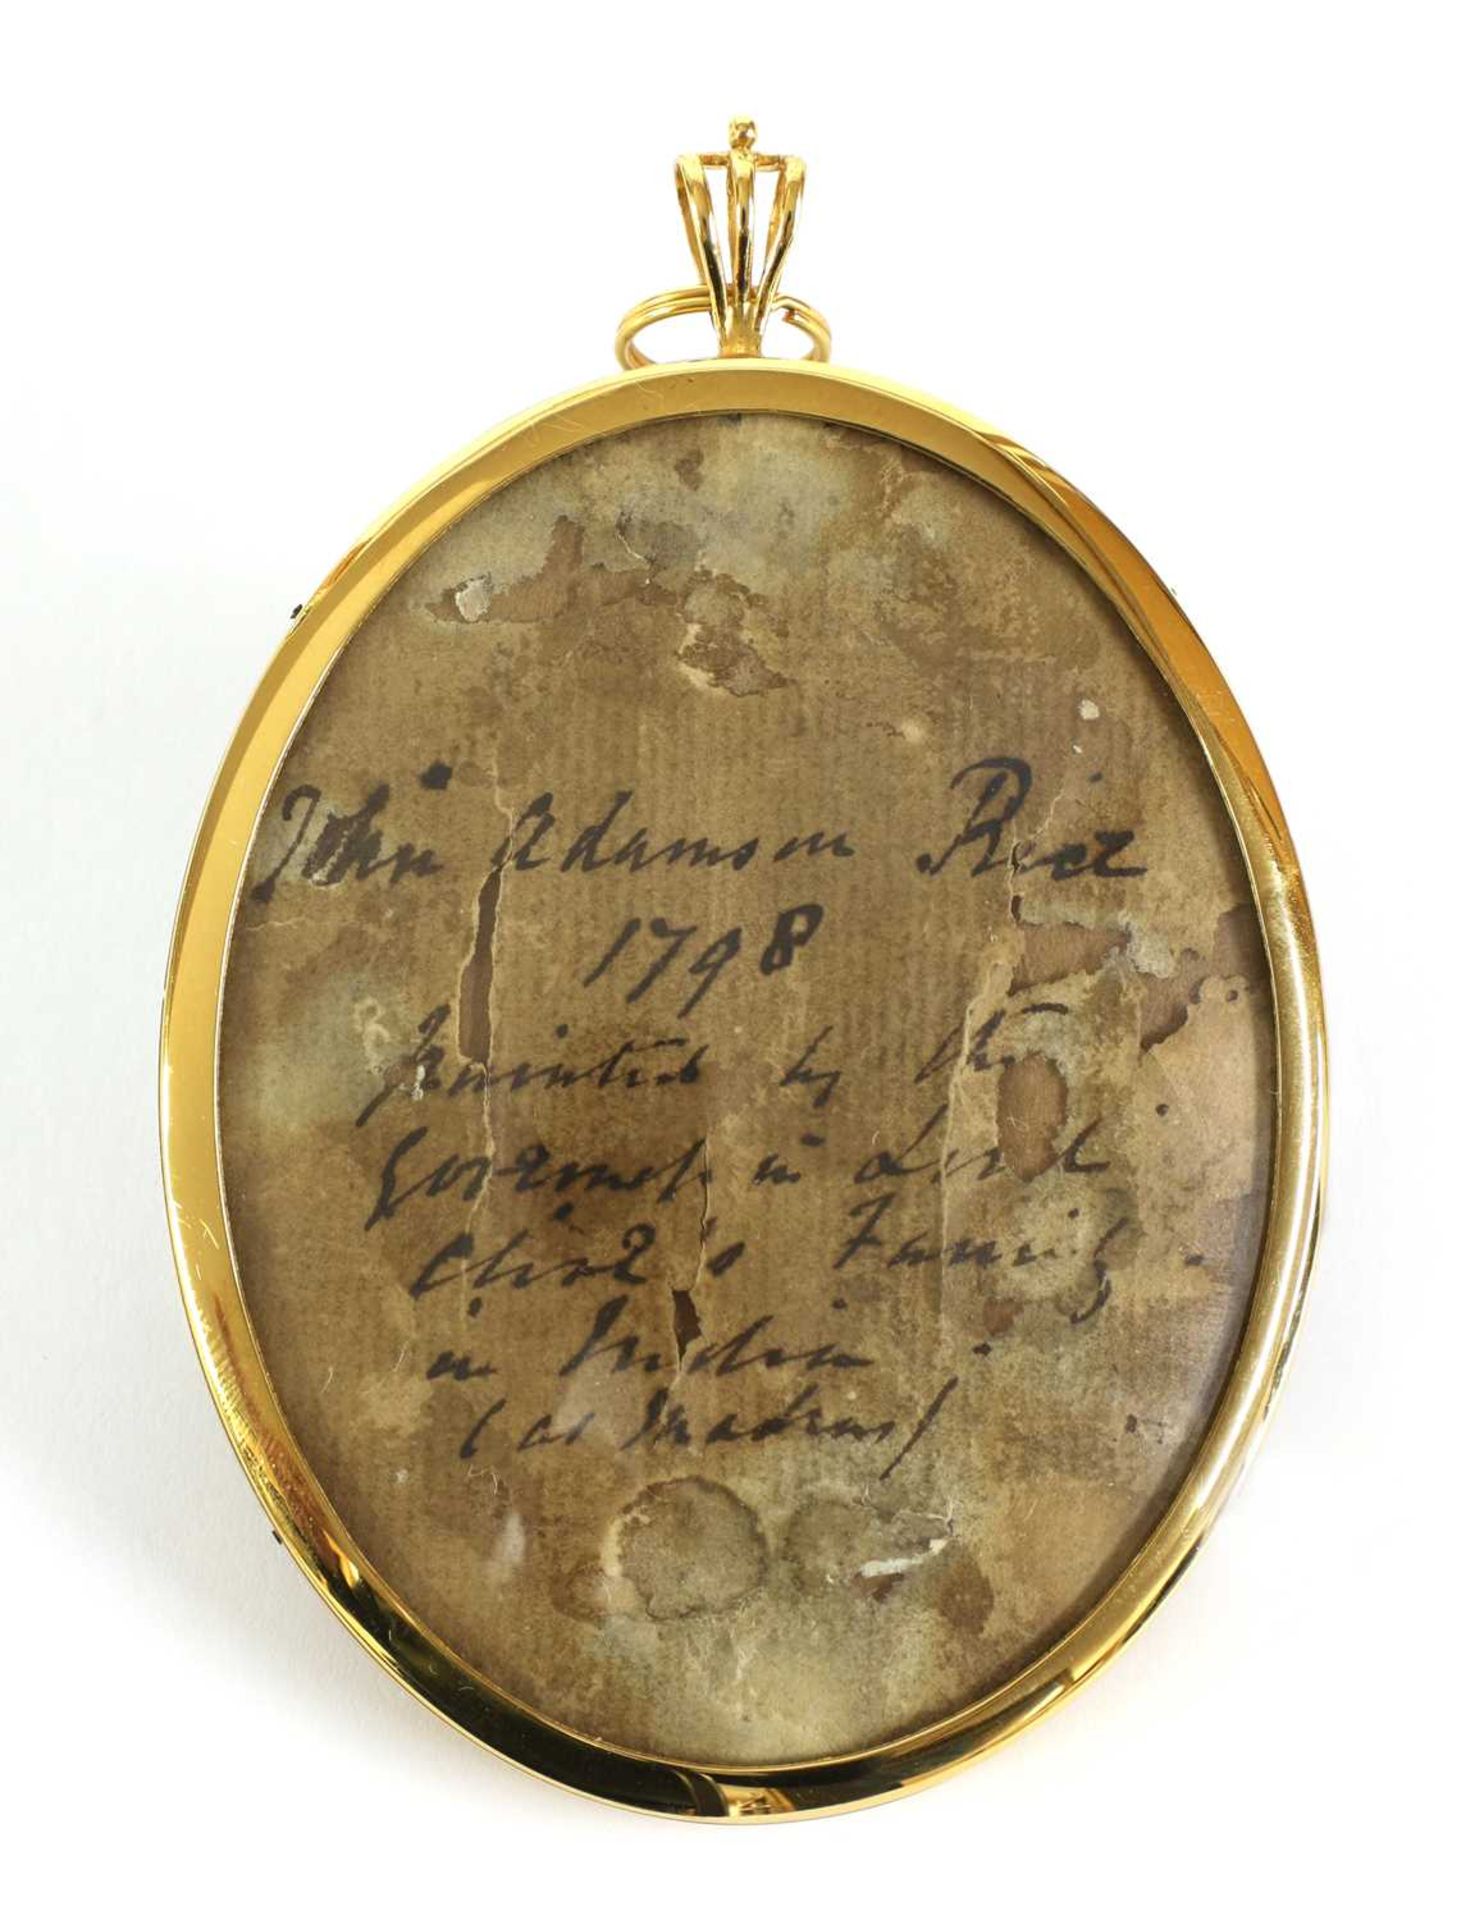 John Adamson Rice
1798
Painted by the
Governess in Lord
Clive's Family
in India
(at Madras)